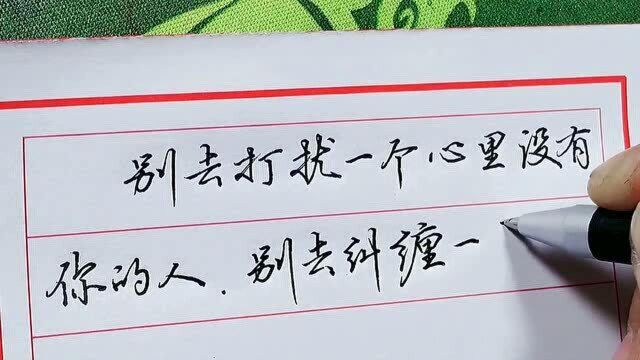 别去打扰一个心里没有
你的人.别去纠缠一